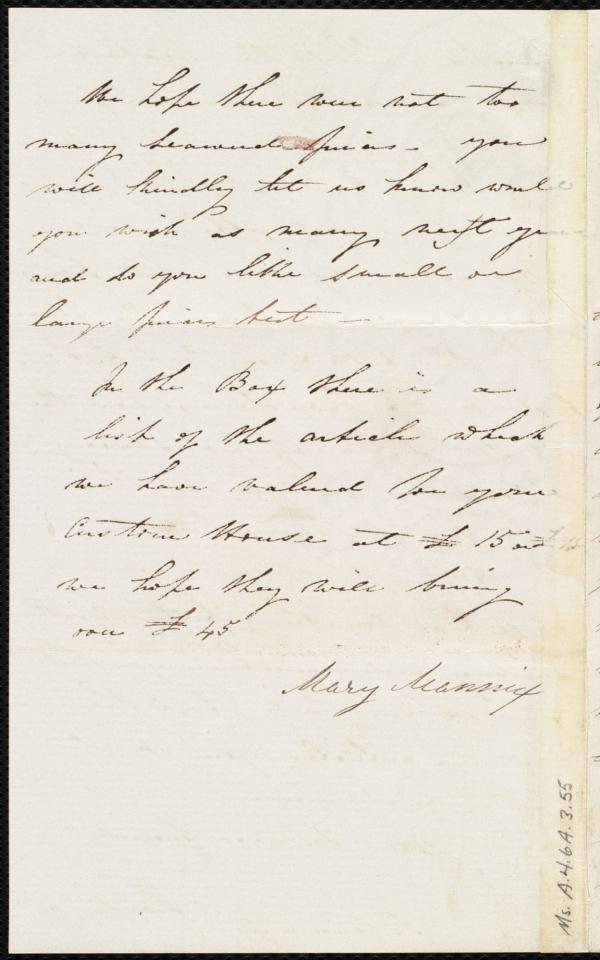 We hope there were not too
many seaweed pieces - you
will kindly let us know would
you wish as many next
and do you like small or
large pieces best -
In the Box there is a
list of the article which
we have valued for your
Custom House at £ 15
we hope they will bring
you £ 45
Mary Mannix
Ms. A.4.6A.3.55